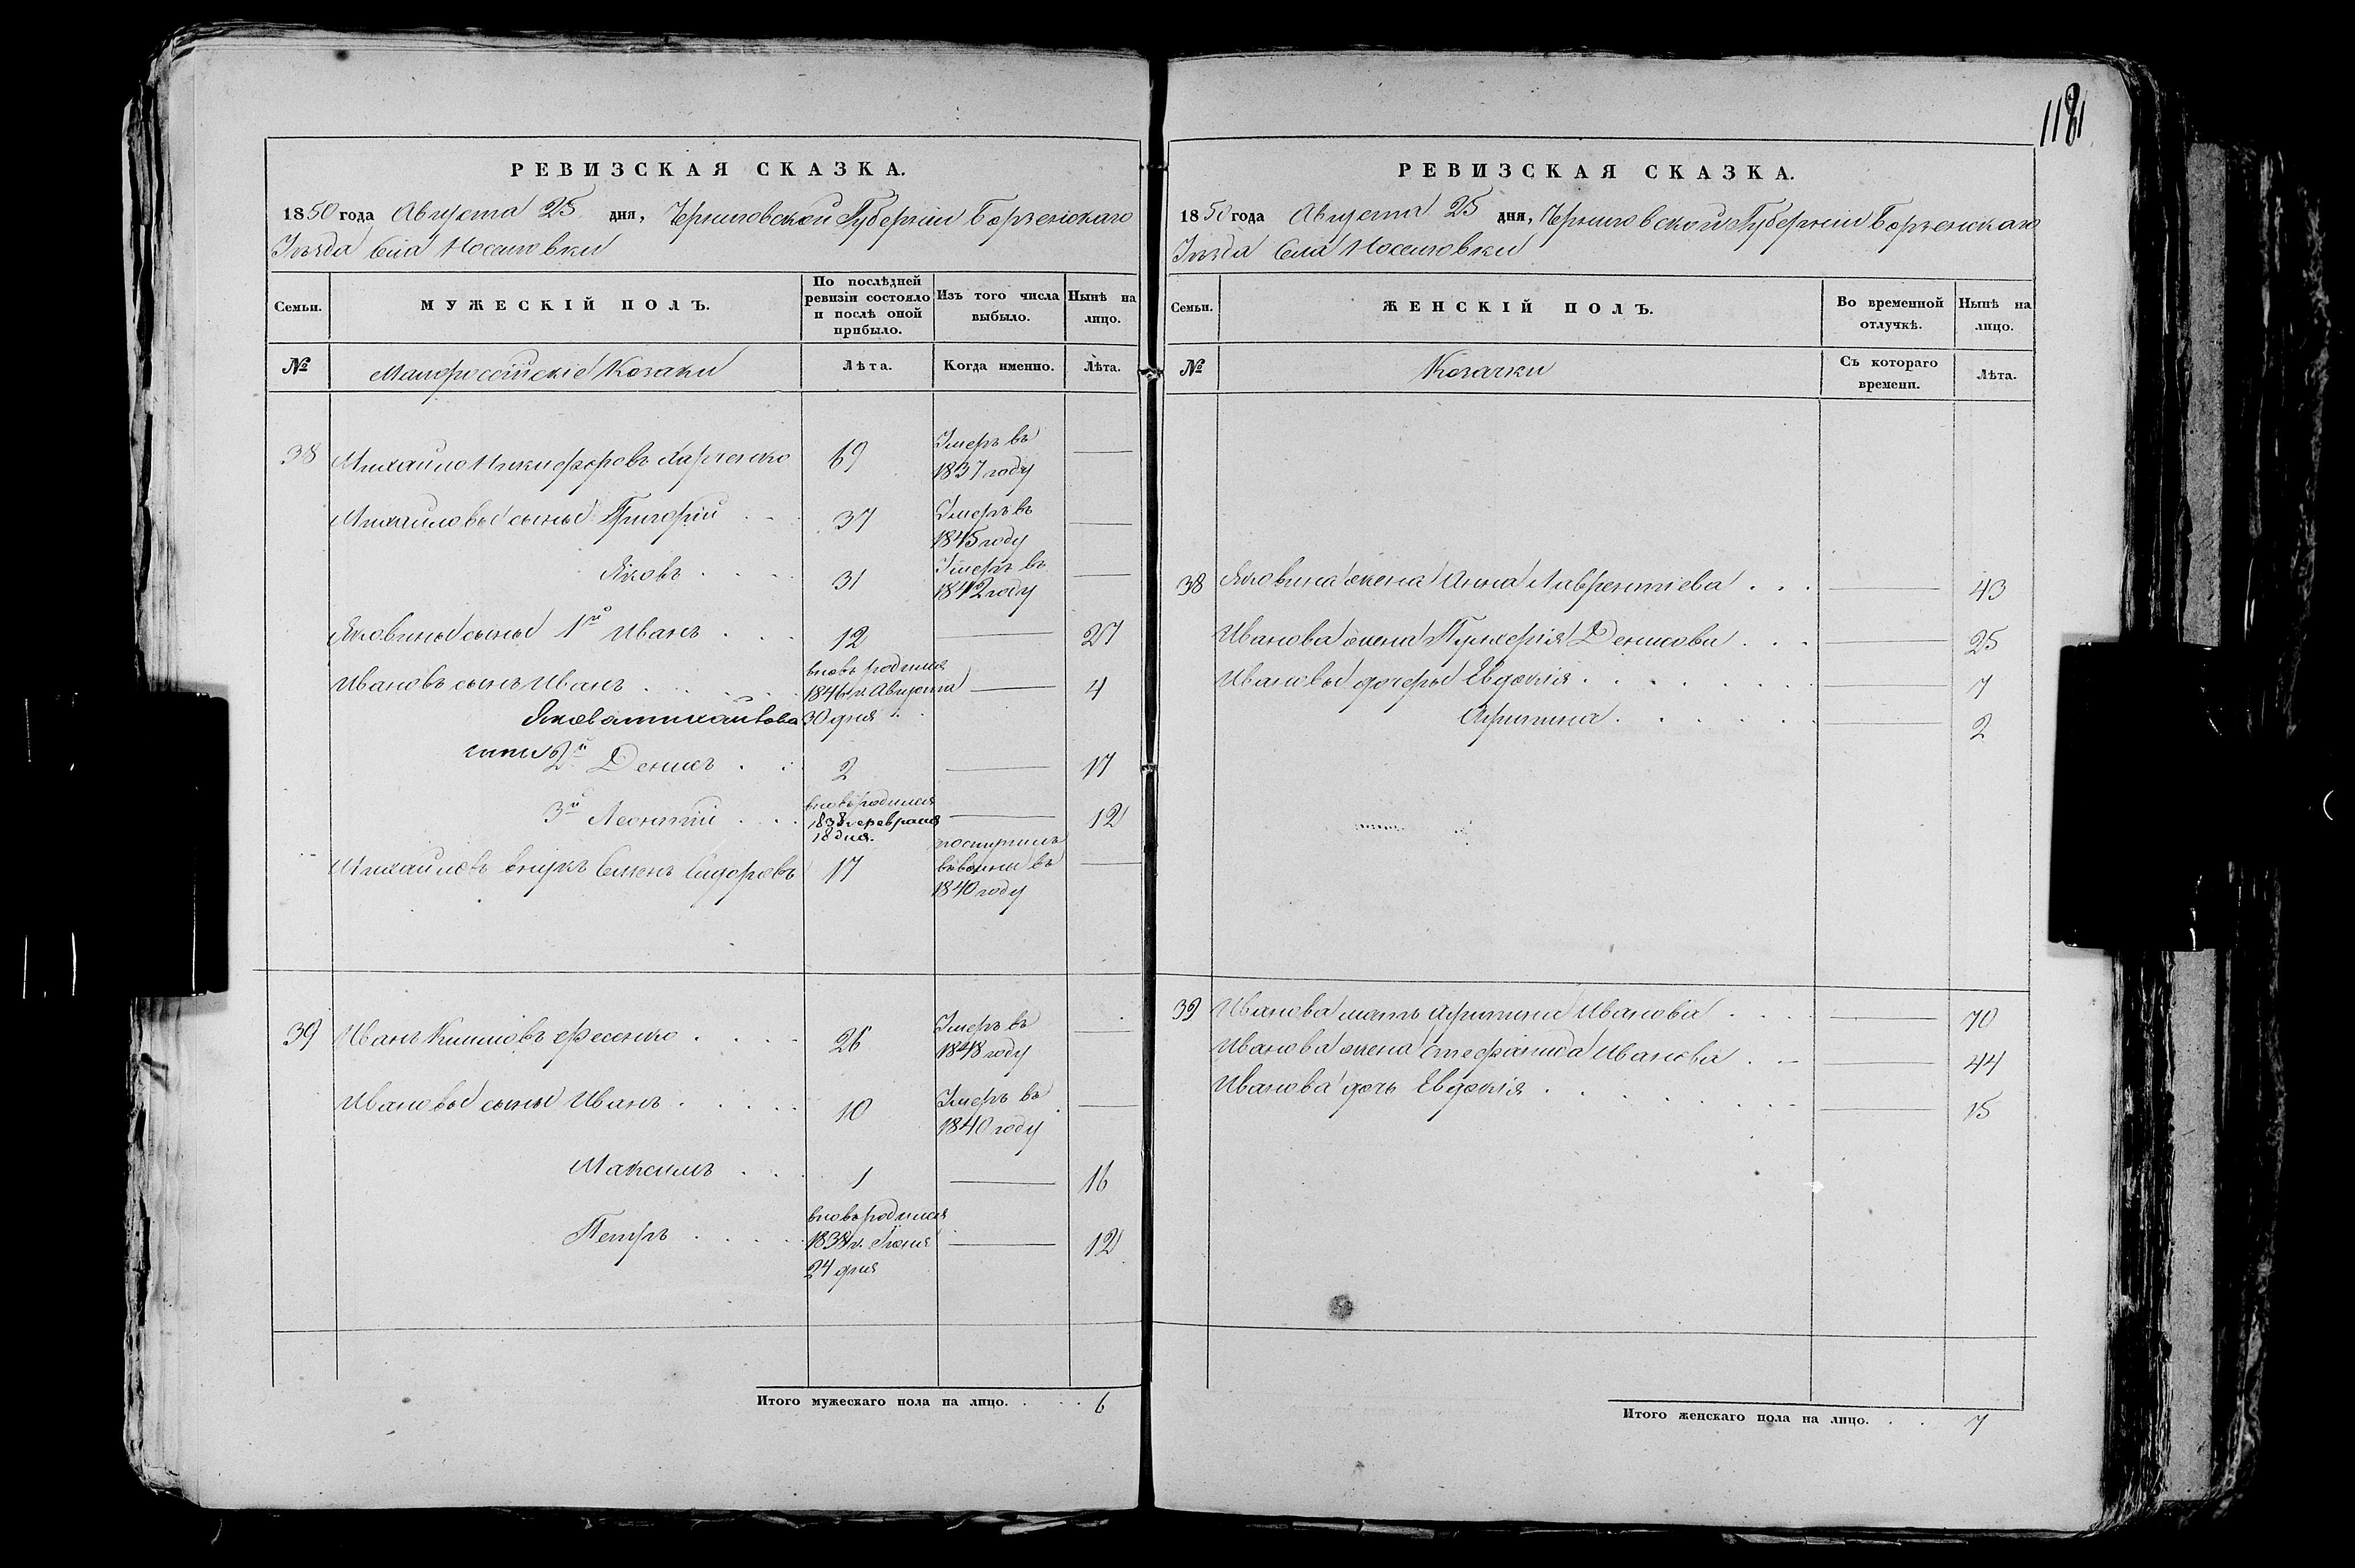 1181
РЕВИЗСКАЯ СКАЗКА.
1850 года Августа 25 дня, Черниговской Губерніи Борзенскаго
Уѣзда Села Носеловки
Семьи.
МУЖЕСКІЙ ПОЛЪ.
По послѣдней ревизіи состояло и послѣ оной прибыло.
Изъ того числа выбыло.
Нынѣ на лицо.
№
Малороссійскіе Козаки
Лѣта.
Когда именно.
Лѣта.
38 Михайло Никифоровъ Харченко 69 Умеръ въ 1837 году —
Михайловы сыны Григорій 37 Умеръ въ 1845 году —
Яковъ 31 Умеръ въ 1842 году —
Яковины сыны 1й Иванъ 12 — 27
Ивановъ сынъ Иванъ вновь родился 1846 г. Августа 30 дня — 4
Якова Михайлова
сыны 2й Денисъ 2 — 17
3й Леонтій вновь родился 1838 г. февраля 18 дня. — 12
Михайловъ внукъ Семенъ Сидоровъ 17 поступилъ въ воины въ 1840 году —
39 Иванъ Климовъ Фесенко 26 Умеръ въ 1848 году —
Ивановы сыны Иванъ 10 Умеръ въ 1840 году —
Максимъ 1 — 16
Петръ вновь родился 1838 г. Іюня 24 дня — 12
Итого мужескаго пола на лицо. 6
РЕВИЗСКАЯ СКАЗКА.
1850 года Августа 25 дня, Черниговской Губерніи Борзенскаго
Уѣзда Села Носеловки
Семьи.
ЖЕНСКІЙ ПОЛЪ.
Во временной отлучкѣ.
Нынѣ на лицо.
№
Козачки
Съ котораго времени.
Лѣта.
38 Яковина жена Анна Лаврентіева — 43
Иванова жена Пульхерія Денисова — 25
Ивановы дочери Евдокія — 7
Агрипина — 2
39 Иванова мать Агрипина Иванова — 70
Иванова жена Стефанида Иванова — 44
Иванова дочь Евдокія — 15
Итого женскаго пола на лицо. 7